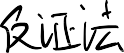 反证法